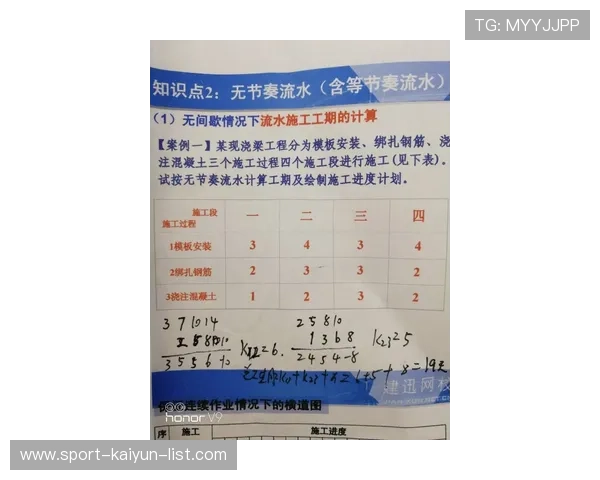 TG: MYYJJPP
知识点2：无节奏流水（含等节奏流水）
（1）无间歇情况下流水施工工期的计算
【案例一】某现浇梁工程分为模板安装、绑扎钢筋、浇
注混凝土三个施工过程四个施工段进行施工(见下表)。
试按无节奏流水计算工期及绘制施工进度计划。
施工段 一 二 三 四
施工过程
1模板安装 3 4 3 4
2绑扎钢筋 2 3 3 2
3浇注混凝土 1 2 3 2
3 7 10 14
2 5 8 10
3 5 5 6 -10
=6.
2 5 8 10
1 3 6 8
2 4 5 4 -8
K23=5
+5+8=19天
建迅网校
连续作业情况下的横道图
honor V9
序 施工 施工进度
www.sport-kaiyun-list.com